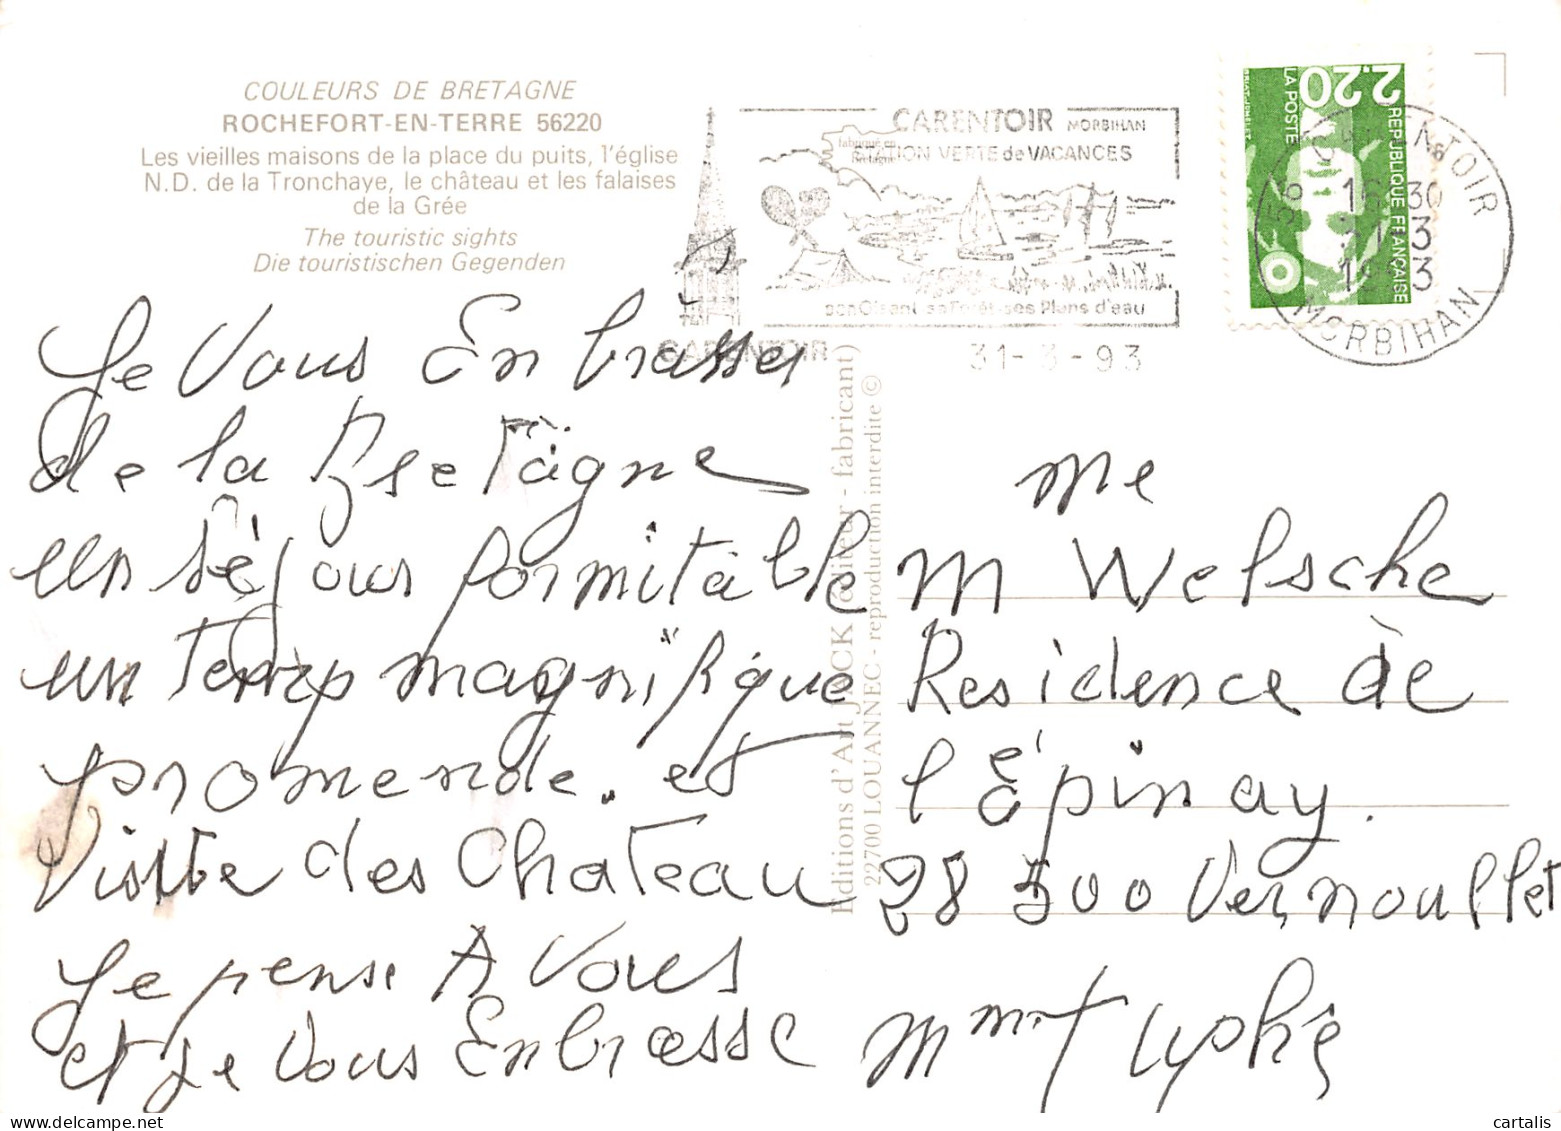 COULEURS DE BRETAGNE
ROCHEFORT-EN-TERRE 56220
Les vieilles maisons de la place du puits, l'église
N.D. de la Tronchaye, le château et les falaises
de la Grée
The touristic sights
Die touristischen Gegenden
CARENTOIR MORBIHAN
STATION VERTE de VACANCES
fabriqué en
Bretagne
Plans d'eau
CARENTOIR
31-3-93
2,20
LA POSTE
REPUBLIQUE FRANÇAISE
56 CARENTOIR
MORBIHAN
Editions d'Art JACK (éditeur - fabricant)
22700 LOUANNEC - reproduction interdite ©
Je Vous En brasses
de la Bretagne
un séjour formitable
un Temp magnifique
promende. et
Visitte des Chateau
Je pense A Vous
et je Vous Enbrasse
me
M Welsche
Residence de
l'épinay.
28 500 Vernoullet
Mme